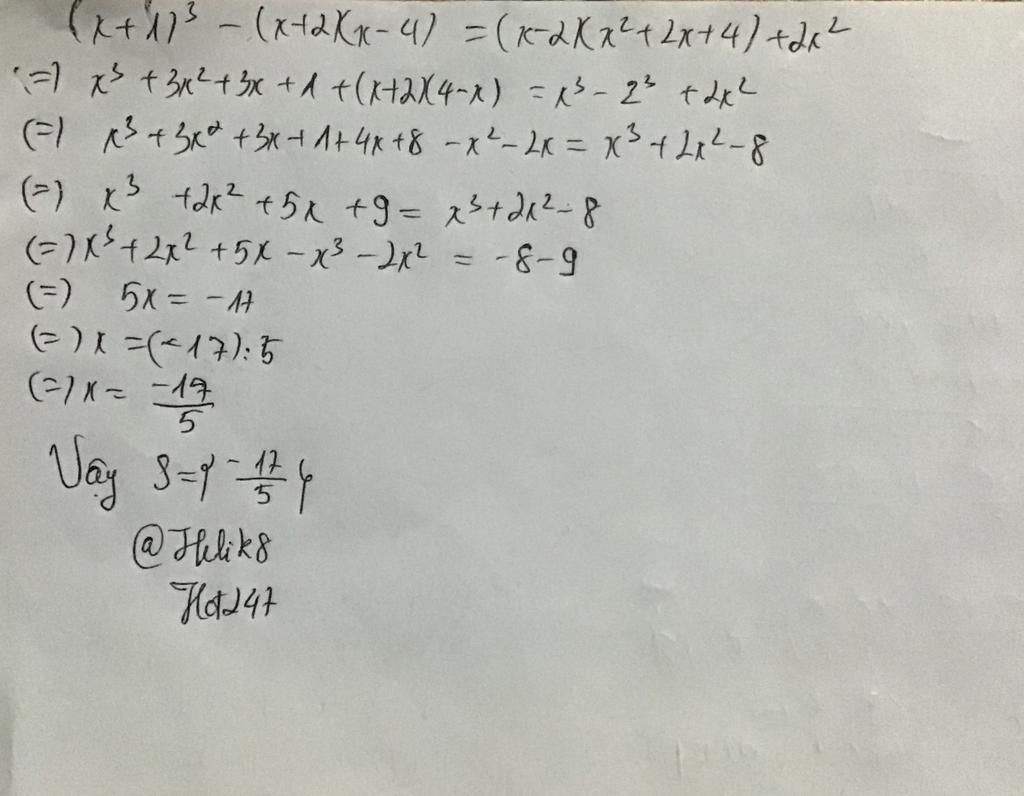 (x+1)³ - (x+2)(x-4) = (x-2)(x²+2x+4) +2x²
(=) x³ + 3x² + 3x + 1 + (x+2)(4-x) = x³ - 2³ + 2x²
(=) x³ + 3x² + 3x + 1 + 4x + 8 - x² - 2x = x³ + 2x² - 8
(=) x³ + 2x² + 5x + 9 = x³ + 2x² - 8
(=) x³ + 2x² + 5x - x³ - 2x² = -8 - 9
(=) 5x = -17
(=) x = (-17) : 5
(=) x = -17/5
Vậy S = { -17/5 }
@Helik8
Hot247